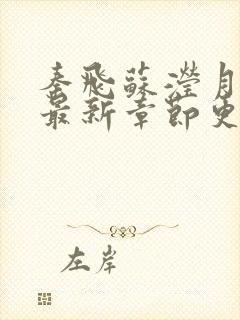 秦飛蘇瀅月
最新章節更
左岸